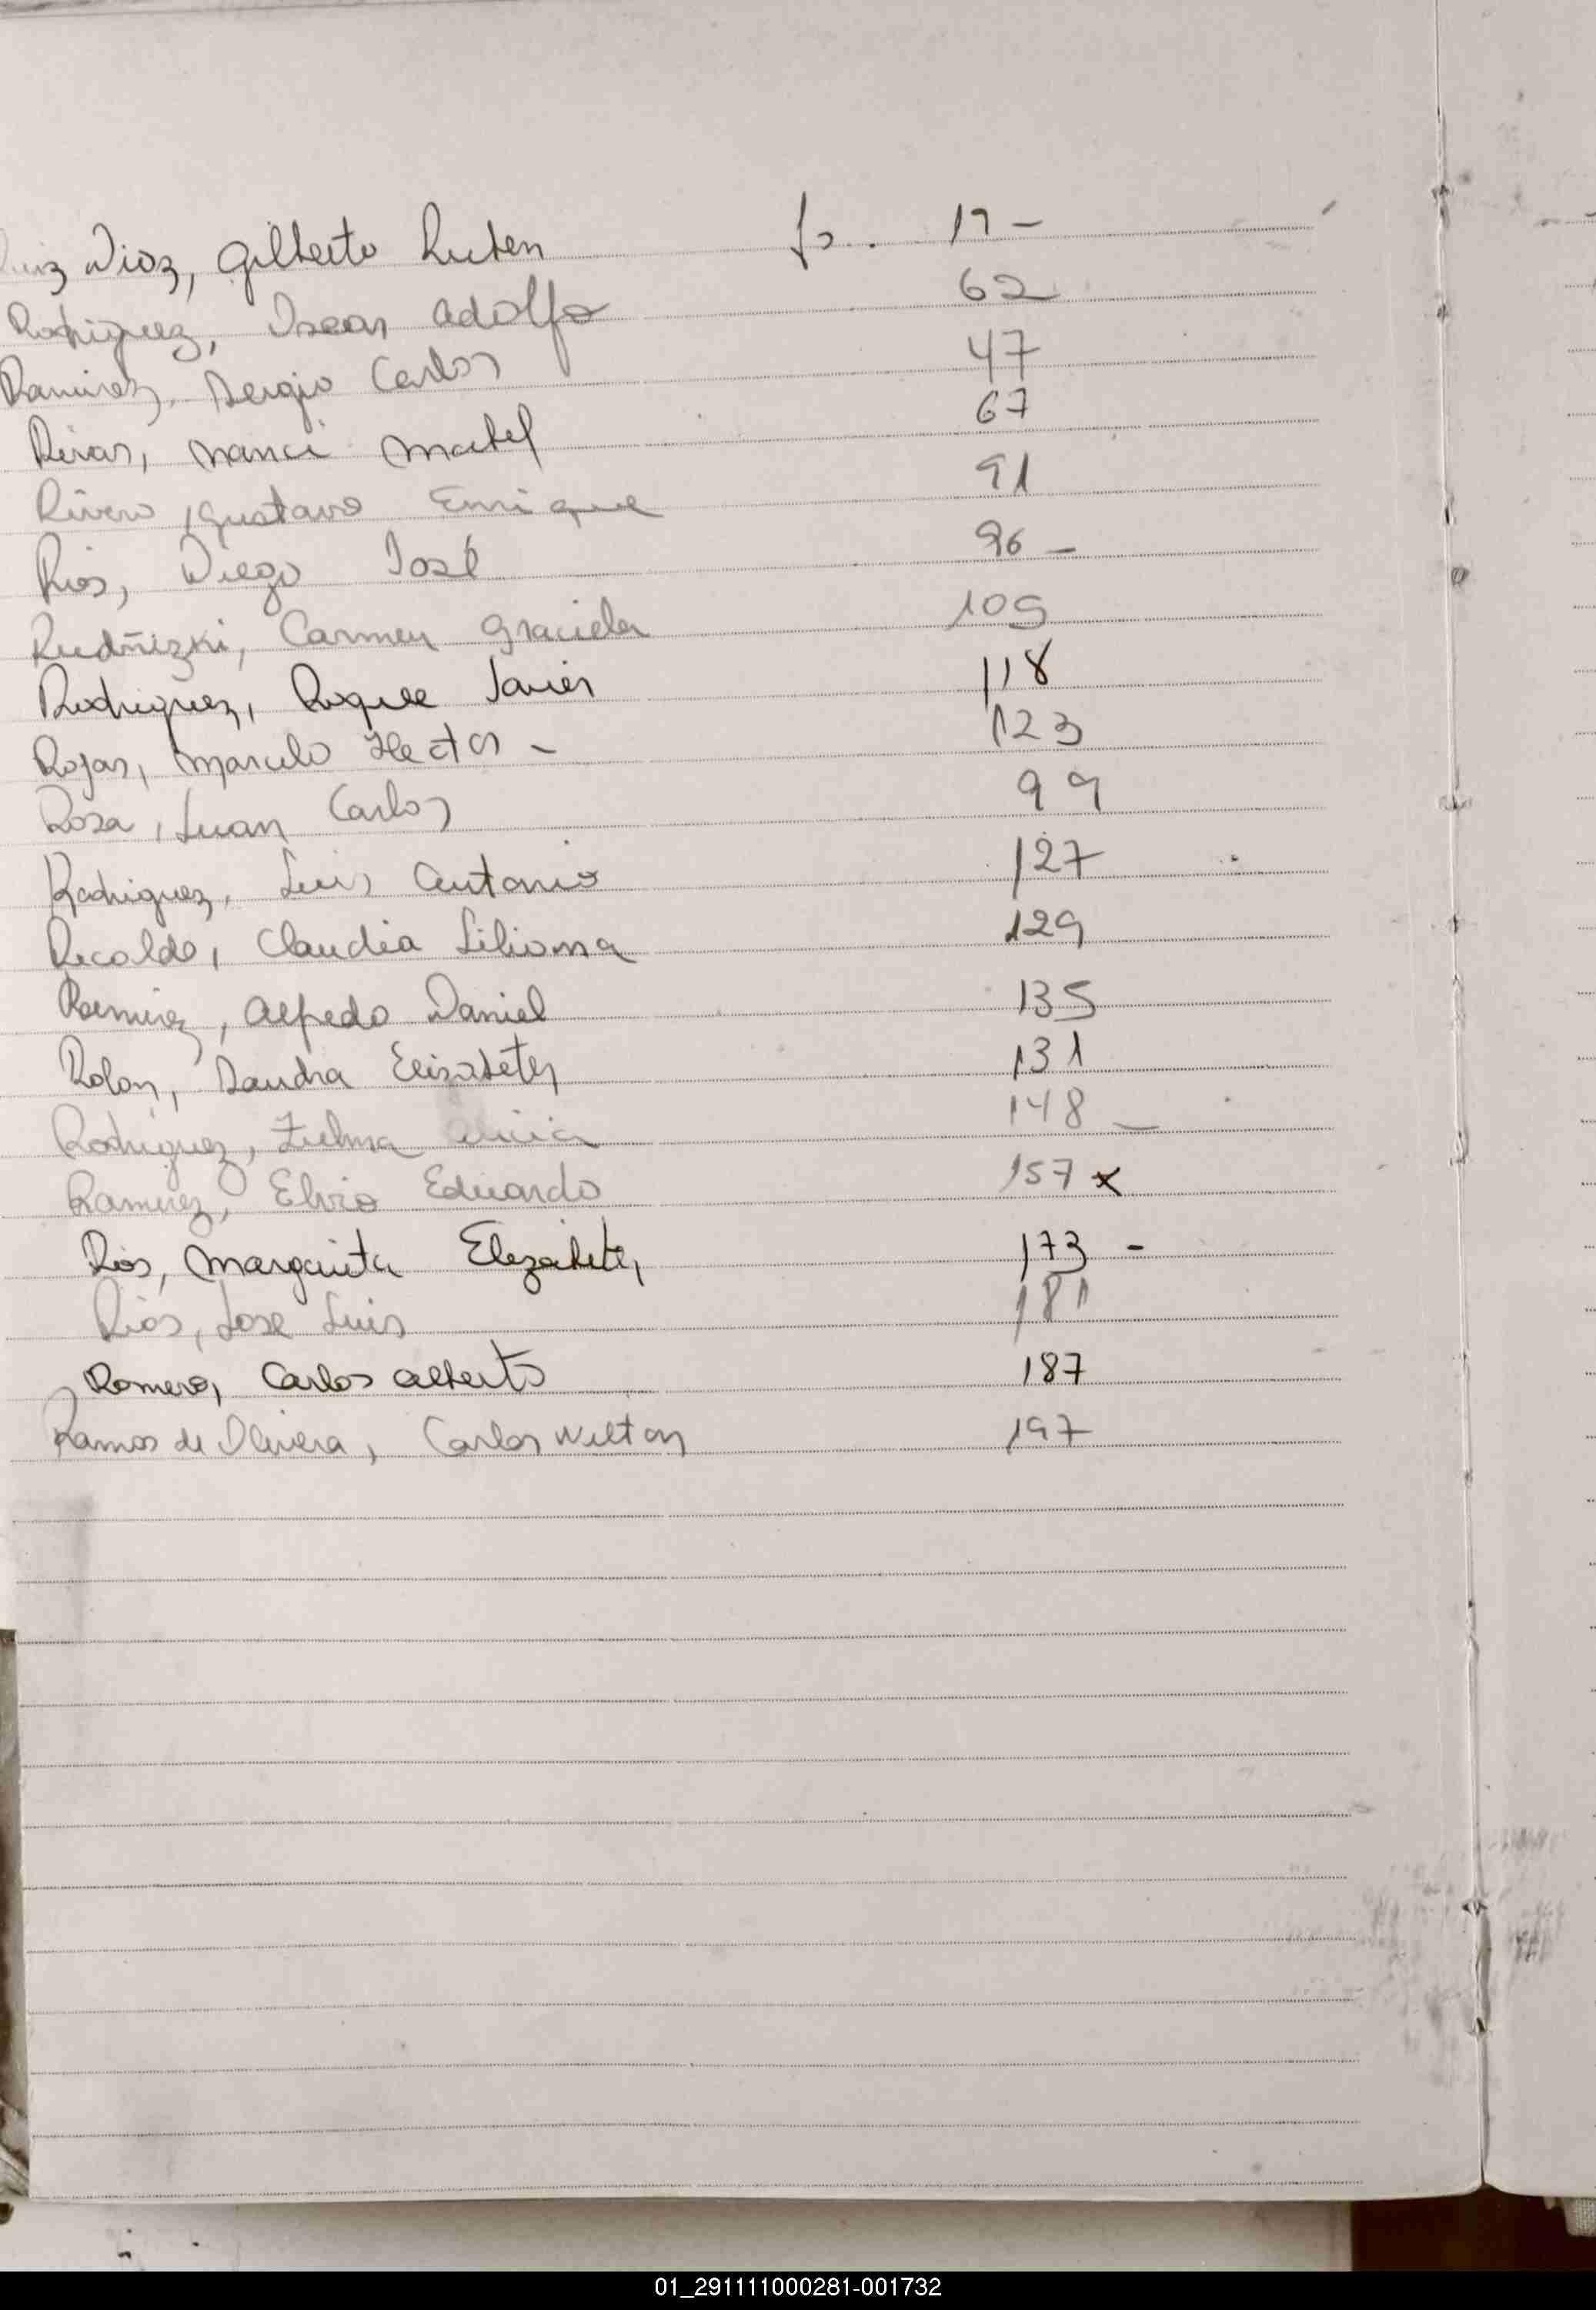 Ruiz Dioz, Gilberto Ruben fs.. 17 -
Rodriguez, Oscar Adolfo 62
Ramirez, Sergio Carlos 47
Rivas, Nanci Mabel 67
Rivero, Gustavo Enrique 91
Rios, Diego José 96 -
Rudñizki, Carmen Graciela 105
Rodriguez, Roque Javier 118
Rojas, Marcelo Hector - 123
Roza, Juan Carlos 99
Rodriguez, Luis Antonio 127
Ricaldo, Claudia Liliana 129
Ramirez, Alfredo Daniel 135
Rolon, Sandra Elizabeth 131
Rodriguez, Zulma Alicia 148 -
Ramirez, Elvio Eduardo 157 x
Rios, Margarita Elezabeth 173 -
Rios, Jose Luis 181
Romero, Carlos Alberto 187
Ramos de Olivera, Carlos Wilton 197
01_291111000281-001732